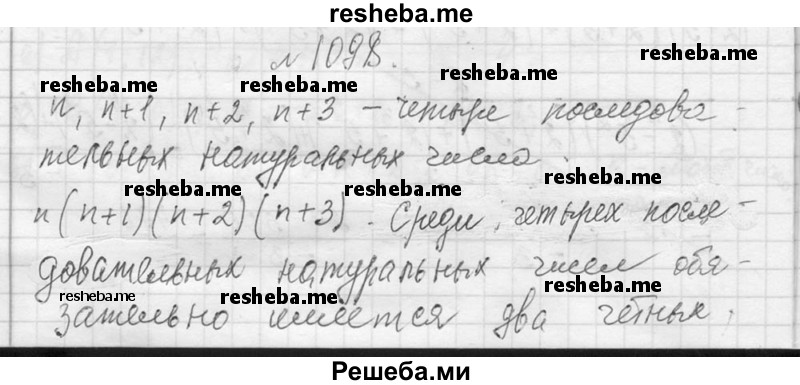 resheba.me
№ 1098.
resheba.me resheba.me resheba.me
n, n+1, n+2, n+3 – четыре последова-
тельных натуральных числа.
resheba.me resheba.me resheba.me
n(n+1)(n+2)(n+3). Среди четырех после-
довательных натуральных чисел обя-
resheba.me resheba.me resheba.me resheba.me
зательно имеется два чётных.
Решеба.ми